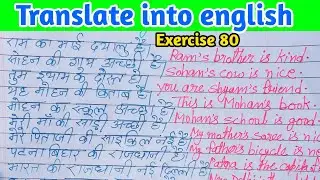 Translate into english
Exercise 80
राम का भाई दयालु है
Ram's brother is kind.
सोहन की गाय अच्छी है
Sohan's cow is nice.
तुम श्याम के दोस्त हो
you are Shyam's friend
यह मोहन की किताब है
This is Mohan's book.
मोहन का स्कूल अच्छा है
Mohan's school is good
मेरी माँ की साड़ी अच्छी है।
My mother's saree is nice
मेरे पिताजी की साइकिल नई है
My father's bicycle is new
पटना बिहार की राजधानी है।
Patna is the capital
भारत की राजधानी नई दिल्ली है
New Delhi